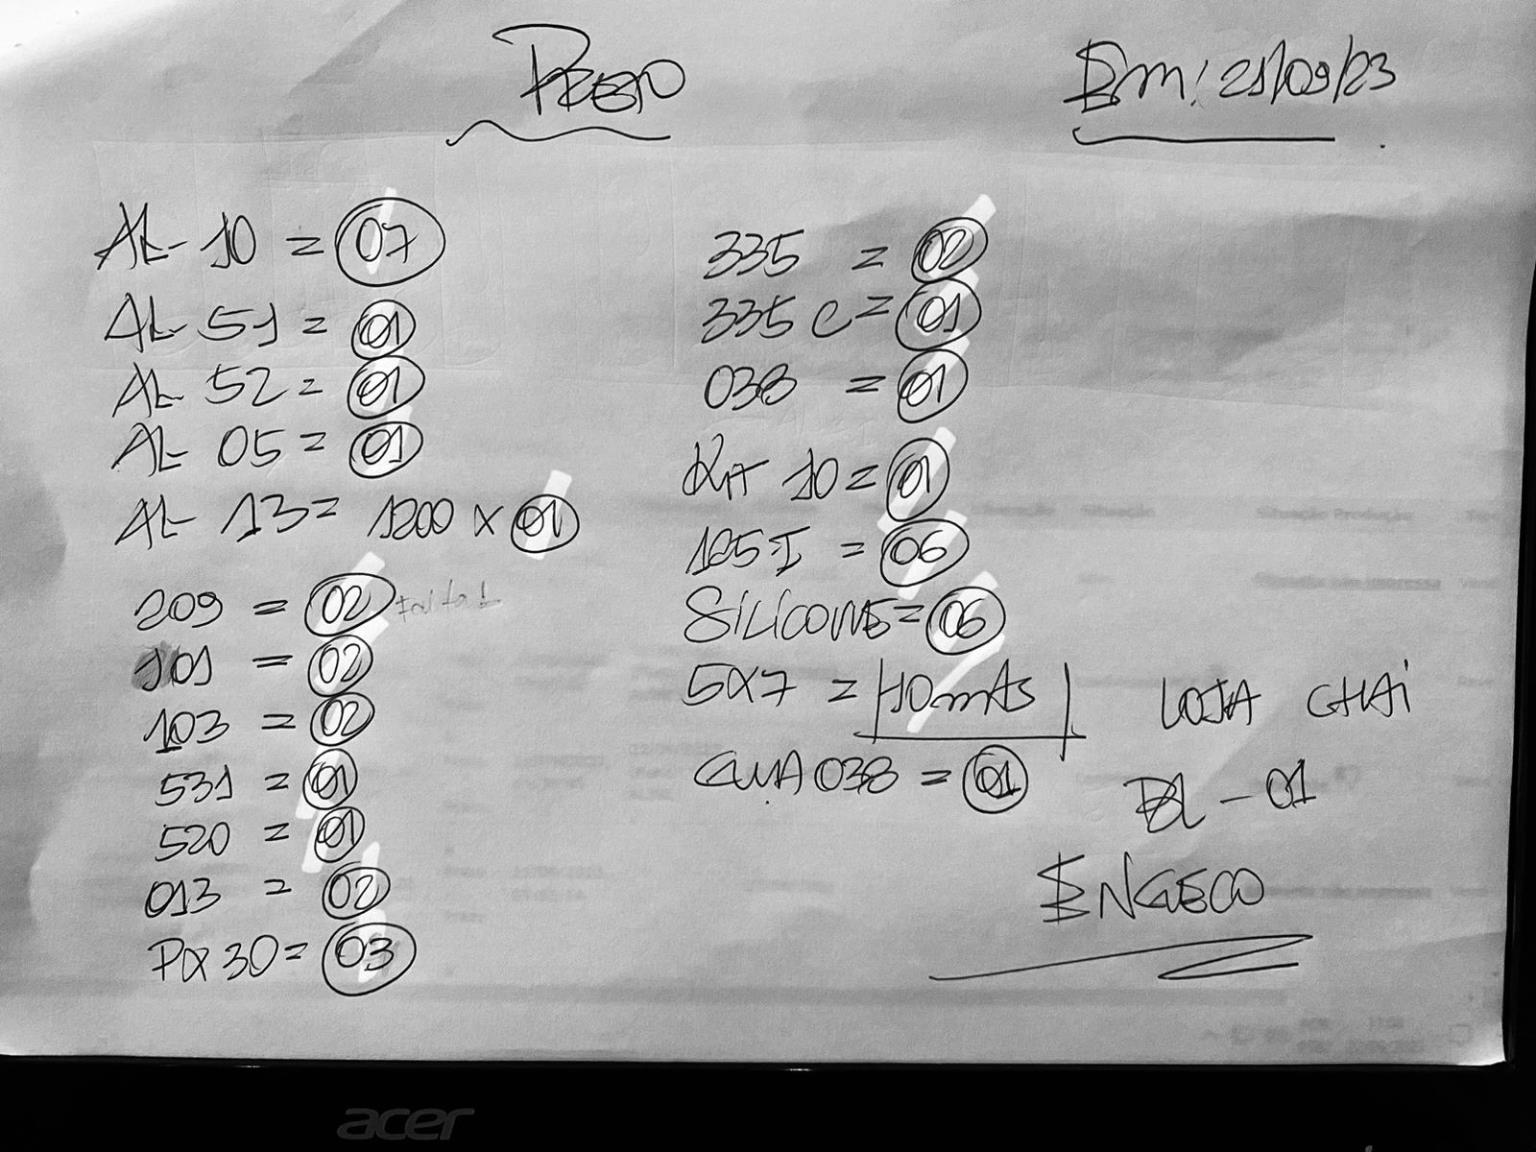 Em: 21/09/23
AL- 10 = 07
AL- 51 = 01
AL- 52 = 01
AL- 05 = 01
AL- 13 = 1200 x 01
209 = 02 falta 1
101 = 02
103 = 02
531 = 01
520 = 01
013 = 02
PX 30 = 03
335 = 02
335 C = 01
038 = 01
Kit 10 = 01
125-I = 06
SILICONE = 06
5X7 = 10 mts
GUIA 038 = 01
LOJA CHAI
BL - 01
ENGECO
acer